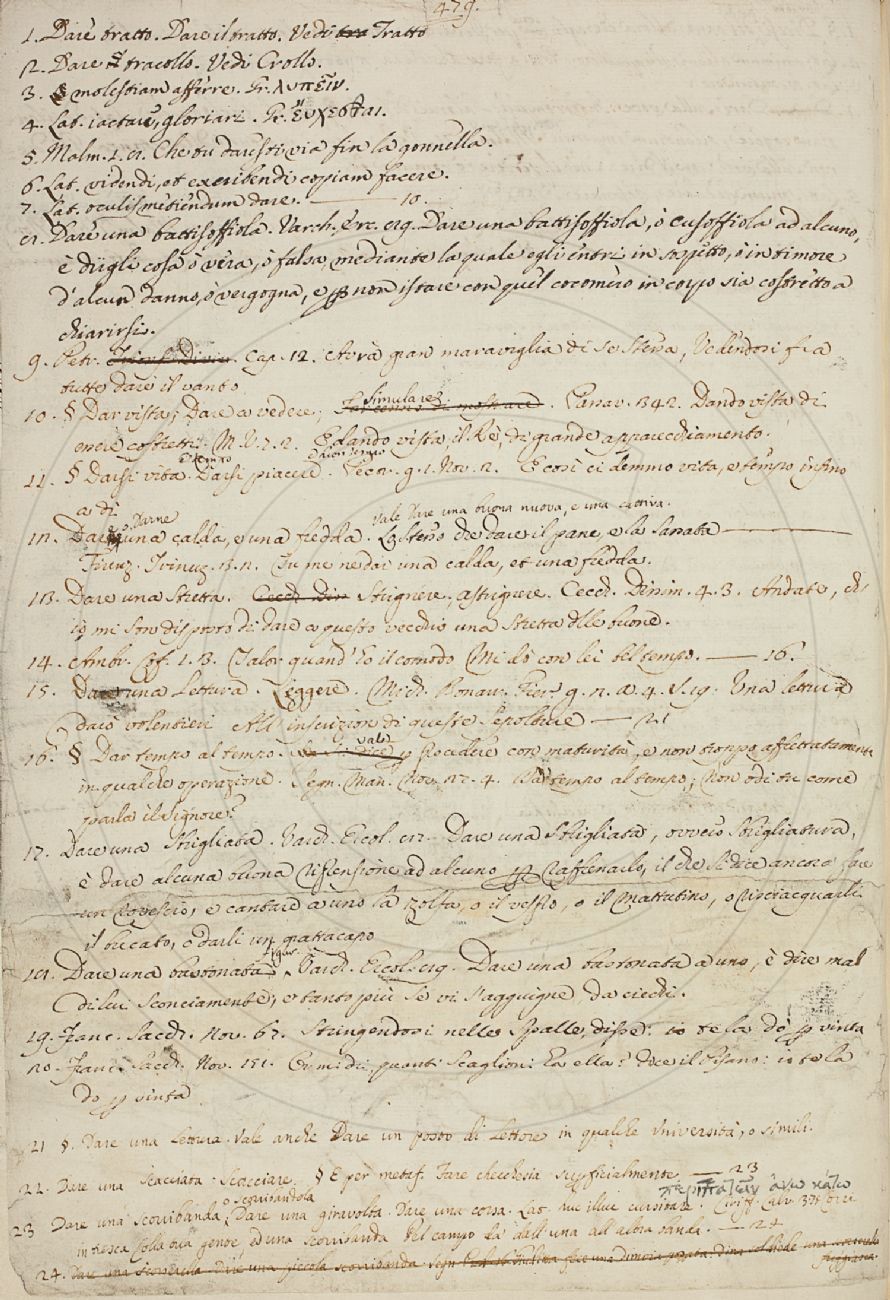 479.
1. Dare tratto. Dare il tratto. Vedi tra Tratto
2. Dare il tracollo. Vedi Crollo.
3. § molestiam afferre. Gr. λυπεῖν.
4. Lat. iactare, gloriari. Gr. εὔχεσθαι.
5. Malm. 1. 81. Che tu daresti via fin la gonnella.
6. Lat. videndi, et exscribendi copiam facere.
7. Lat. oculis metiendum dare. — 10.
8. Dare una battisoffiola. Varch. Erc. 89. Dare una battisoffiola, o cusoffiola ad alcuno,
è dirgli cosa o vera, o falsa, mediante la quale egli entri in sospetto, o in timore
d'alcun danno, o vergogna, e p non istare con quel cocomero in corpo sia costretto a
chiarirsi.
9. Petr. Cap. 12. Avrà gran maraviglia di se stessa, Vedendosi fra
tutte dare il vanto
10. § Dar vista; Dare a vedere; simulare. 342. Dando vista di
essere costretti. M. V. 7. 2. E dando vista, il Rè, di grande apparecchiamento.
11. § Darsi vita e tempo. Darsi piacere e buon tempo. Pecor. g. 1. Nov. 2. E così ci demmo vita, e tempo infino
a dì
12. Dare o Darne una calda, e una fredda. Vale Dare una buona nuova, e una cattiva. Lo stesso che dare il pane, e la sassata —
Firenz. Trinuz. 3. 2. Tu me ne dai una calda, et una fredda.
13. Dare una Stretta. Cecch. Dis Strignere, astrignere. Cecch. Dissim. 4. 3. Andate, ch'
io mi son disposto di dare a questo vecchio una stretta delle buone.
14. Ambr. Cof. 1. 3. Talor quand' ho il comodo Mi dò con lei bel tempo. — 16.
15. Dare una Lettura. Leggere. Mich. Bonar. Fier. g. 2. a. 4. s. 19. Una lettura
darò volentieri All' inscrizion di queste sepolture — 21
16. § Dar tempo al tempo. vale Procedere con maturità, e non troppo affrettatamente
in qualche operazione. Segn. Man. Nov. 12. 4. Da tempo al tempo; Non odi tu come
parla il Signore?
17. Dare una Strigliata. Varch. Ercol. 82. Dare una Strigliata, ovvero Strigliatura,
è dare alcuna buona riprensione ad alcuno p raffrenarlo, il che si dice ancora fare
un rovescio, e cantare a uno la zolfa, o il vespro, o il mattutino, o risciacquarli
il bucato, o darli un grattacapo
18. Dare una bastonata figur. Varch. Ercol. 89. Dare una bastonata a uno, è dire mal
di lui sconciamente, e tanto più se vi s'aggiugne, da ciechi.
19. Franc. Sacch. Nov. 67. Stringendosi nelle spalle, disse: io te la dò p vinta
20. Franc. Sacch. Nov. 151. Or mi dì, quanti scaglioni ha ella? dice il Pisano: io te la
do p vinta
21 §. Dare una lettura. Vale anche Dare un posto di Lettore in qualche Università, o simili.
22. Dare una scacciata. Scacciare. § E per metaf. Fare checchessia superficialmente — 23
23 Dare una scorribanda, o scorribandola Dare una giravolta. Dare una corsa. Lat. huc illuc cursitare. περιπατεῖν ἄνω κάτω Ciriff. Calv.
in fresca Colla sua gente ed una scorribanda Pel campo fa' dall' una all' altra banda. — 24
24. Dare una scorserella. Dare una piccola scorribanda.